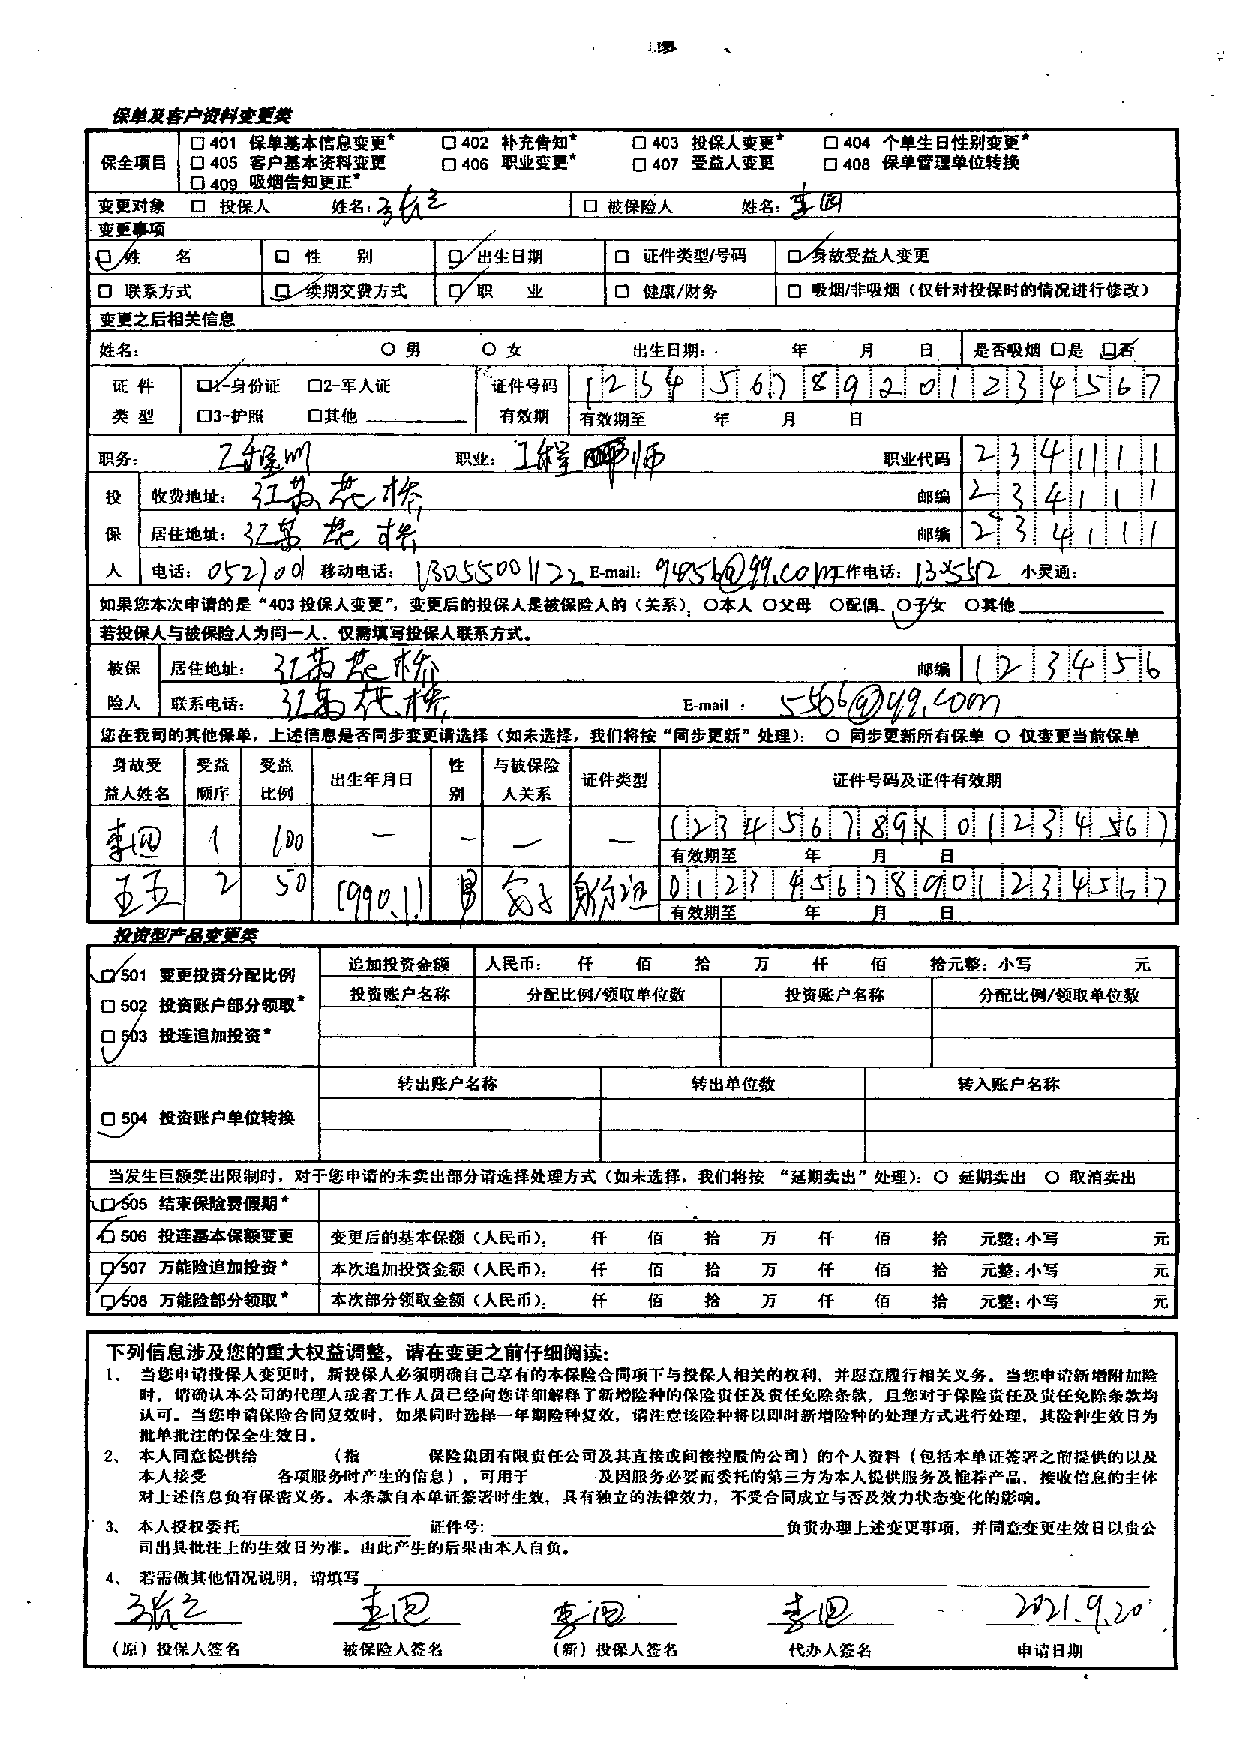 保单及客户资料变更类
保全项目 □ 401 保单基本信息变更* □ 402 补充告知* □ 403 投保人变更* □ 404 个单生日性别变更*
□ 405 客户基本资料变更 □ 406 职业变更* □ 407 受益人变更 □ 408 保单管理单位转换
□ 409 吸烟告知更正*
变更对象 □ 投保人 姓名: □ 被保险人 姓名:李四
变更事项
□ 姓 名 □ 性 别 □ 出生日期 □ 证件类型/号码 □ 身故受益人变更
□ 联系方式 □ 续期交费方式 □ 职 业 □ 健康/财务 □ 吸烟/非吸烟(仅针对投保时的情况进行修改)
变更之后相关信息
姓名: ○ 男 ○ 女 出生日期: 年 月 日 是否吸烟 □是 □否
证 件 □1-身份证 □2-军人证 证件号码 123456789201234567
类 型 □3-护照 □其他 有效期 有效期至 年 月 日
职务: 职业:工程师 职业代码 234111
投 收费地址:江苏花桥 邮编 234111
保 居住地址:江苏花桥 邮编 234111
人 电话:052100 移动电话:13055001122 E-mail:9456@qq.com 工作电话: 小灵通:
如果您本次申请的是“403投保人变更”,变更后的投保人是被保险人的(关系): ○本人 ○父母 ○配偶 ○子女 ○其他
若投保人与被保险人为同一人,仅需填写投保人联系方式。
被保 居住地址:江苏花桥 邮编 123456
险人 联系电话:江苏花桥 E-mail : 5566@qq.com
您在我司的其他保单,上述信息是否同步变更请选择(如未选择,我们将按“同步更新”处理): ○ 同步更新所有保单 ○ 仅变更当前保单
身故受 受益 受益 出生年月日 性 与被保险 证件类型 证件号码及证件有效期
益人姓名 顺序 比例 别 人关系
李四 1 100 — — — — 123456789X01234567
有效期至 年 月 日
王五 2 50 1990.1.1 男 身份证 012345678901234567
有效期至 年 月 日
投资型产品变更类
□ 501 变更投资分配比例 追加投资金额 人民币: 仟 佰 拾 万 仟 佰 拾元整:小写 元
□ 502 投资账户部分领取* 投资账户名称 分配比例/领取单位数 投资账户名称 分配比例/领取单位数
□ 503 投连追加投资*
转出账户名称 转出单位数 转入账户名称
□ 504 投资账户单位转换
当发生巨额卖出限制时,对于您申请的未卖出部分请选择处理方式(如未选择,我们将按 “延期卖出”处理): ○ 延期卖出 ○ 取消卖出
□ 505 结束保险费假期*
□ 506 投连基本保额变更 变更后的基本保额(人民币): 仟 佰 拾 万 仟 佰 拾 元整:小写 元
□ 507 万能险追加投资* 本次追加投资金额(人民币): 仟 佰 拾 万 仟 佰 拾 元整:小写 元
□ 508 万能险部分领取* 本次部分领取金额(人民币): 仟 佰 拾 万 仟 佰 拾 元整:小写 元
下列信息涉及您的重大权益调整,请在变更之前仔细阅读:
1、 当您申请投保人变更时,新投保人必须明确自己享有的本保险合同项下与投保人相关的权利,并愿意履行相关义务。当您申请新增附加险
时,请确认本公司的代理人或者工作人员已经向您详细解释了新增险种的保险责任及责任免除条款,且您对于保险责任及责任免除条款均
认可。当您申请保险合同复效时,如果同时选择一年期险种复效,请注意该险种将以即时新增险种的处理方式进行处理,其险种生效日为
批单批注的保全生效日。
2、 本人同意提供给 (指 保险集团有限责任公司及其直接或间接控股的公司)的个人资料(包括本单证签署之前提供的以及
本人接受 各项服务时产生的信息),可用于 及因服务必要而委托的第三方为本人提供服务及推荐产品,接收信息的主体
对上述信息负有保密义务。本条款自本单证签署时生效,具有独立的法律效力,不受合同成立与否及效力状态变化的影响。
3、 本人授权委托 证件号: 负责办理上述变更事项,并同意变更生效日以贵公
司出具批注上的生效日为准。由此产生的后果由本人自负。
4、 若需做其他情况说明,请填写
李四 李四 李四 2021.9.20
(原)投保人签名 被保险人签名 (新)投保人签名 代办人签名 申请日期